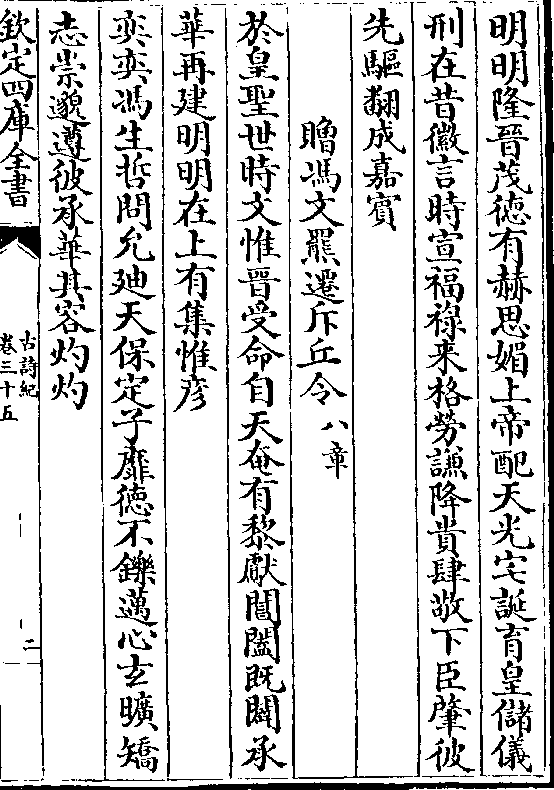 明明隆晉茂德有赫思媚上帝配天光宅誕育皇儲儀
刑在昔徽言時宣福祿来格勞謙降貴肆敬下臣肇彼
先驅翻成嘉賓
贈馮文羆遷斥丘令八章
於皇聖世時文惟晉受命自天奄有黎獻閶闔既闢承
華再建明明在上有集惟彦
奕奕馮生哲問允迪天保定子靡德不鑠邁心玄曠矯
志崇邈遵彼承華其容灼灼
欽定四庫全書
古詩紀
卷三十五
二